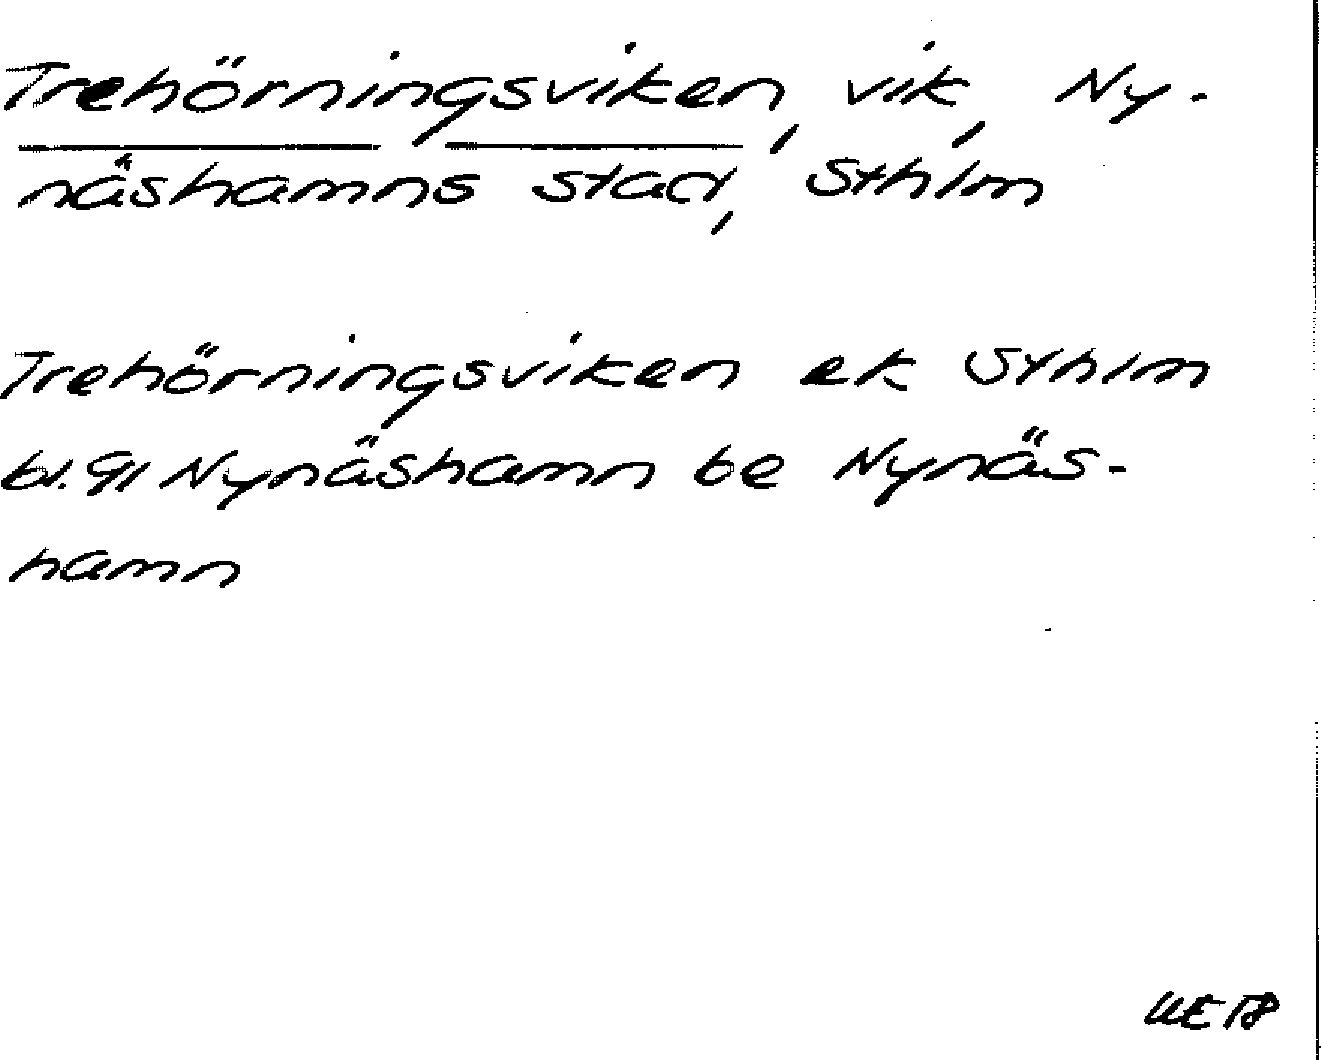 Trehörningsviken, vik, Ny-
näshamns stad, Sthlm
Trehörningsviken ek Sthlm
bl. 91 Nynäshamn be Nynäs-
hamn